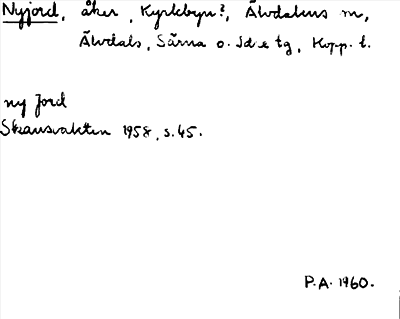 Nyjord, åker, Kyrkbyn?, Älvdalens m,
Älvdals, Särna o. Id e tg, Kopp. l.
ny jord
Skansvakten 1958, s. 45.
P.A. 1960.